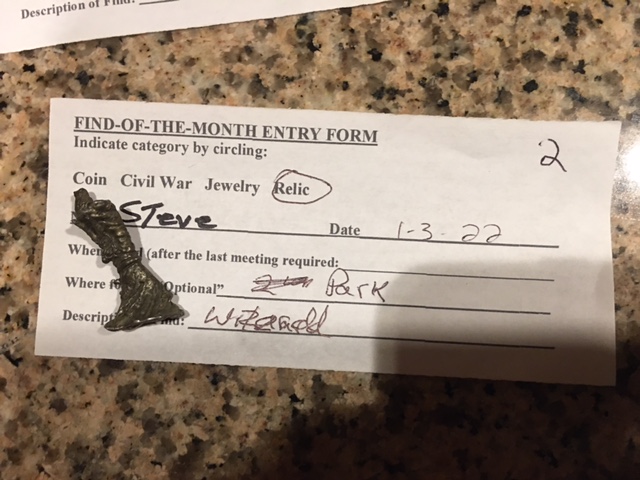 Description of Find:
FIND-OF-THE-MONTH ENTRY FORM
Indicate category by circling:
2
Coin Civil War Jewelry Relic
Steve Date 1-3-22
When (after the last meeting required:
Where Optional" Park